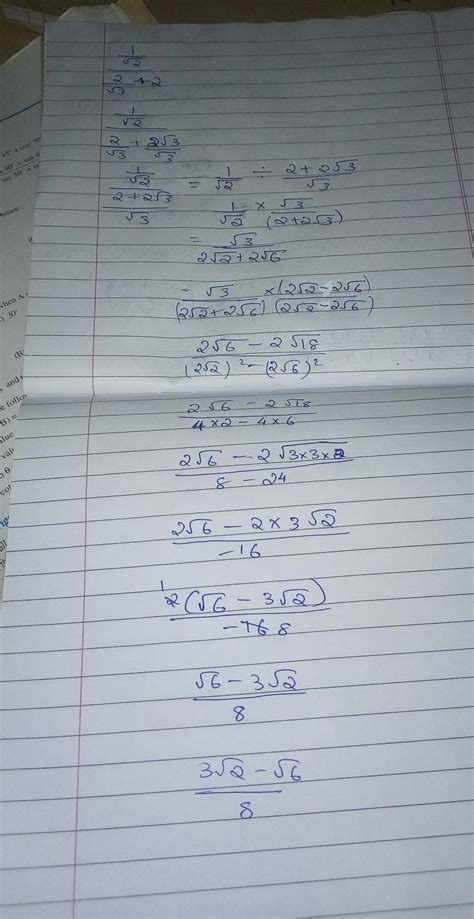 1/√2
2/√3 + 2
1/√2
2/√3 + 2√3/√3
(1/√2)/((2+2√3)/√3) = 1/√2 ÷ (2+2√3)/√3
1/√2 × √3/(2+2√3)
= √3/(2√2+2√6)
= √3/(2√2+2√6) × (2√2-2√6)/(2√2-2√6)
(2√6 - 2√18)/((2√2)² - (2√6)²)
(2√6 - 2√18)/(4×2 - 4×6)
(2√6 - 2√3×3×2)/(8 - 24)
(2√6 - 2×3√2)/-16
2(√6 - 3√2)/-16 1 8
(√6 - 3√2)/8
(3√2 - √6)/8